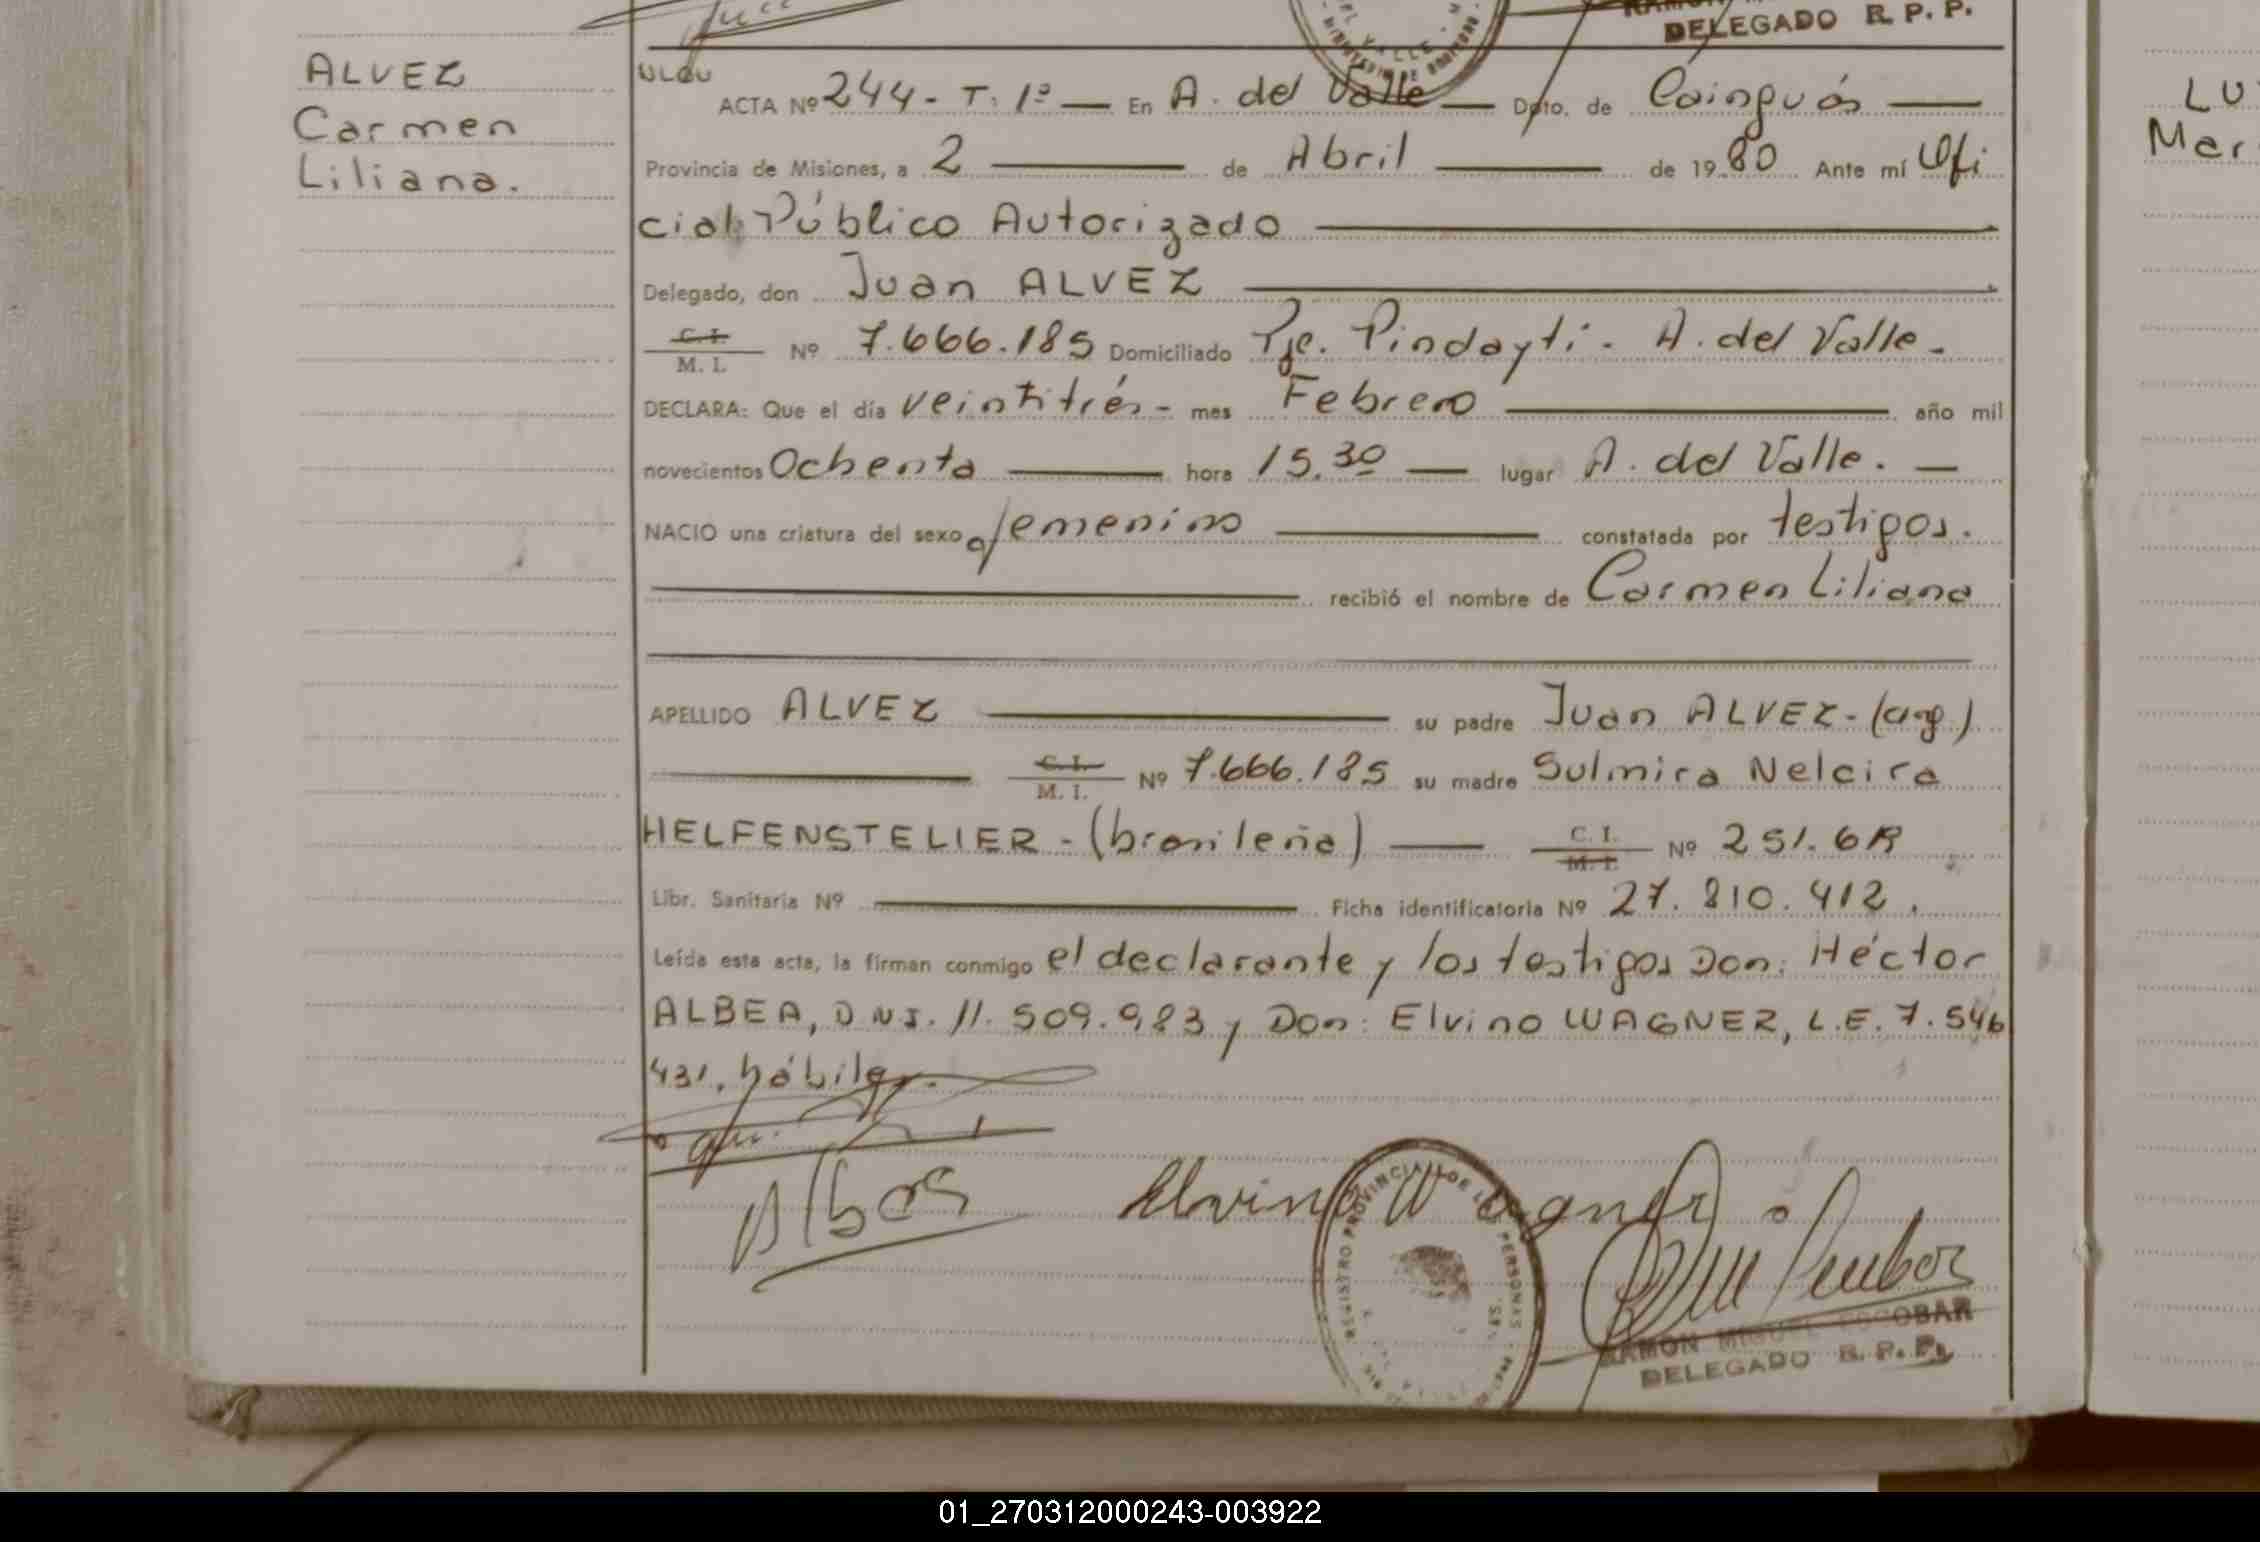 DELEGADO R. P. P.
ALVEZ
Carmen
Liliana.
ACTA Nº 244 - T. 1º — En A. del Valle — Dpto. de Cainguás —
Provincia de Misiones, a 2 — de Abril — de 1980 Ante mí Ofi
cial Público Autorizado —
Delegado, don Juan ALVEZ —
C. I.
M. I. Nº 7.666.185 Domiciliado Pje. Pindaytí - A. del Valle -
DECLARA: Que el día veintitrés - mes Febrero — año mil
novecientos Ochenta — hora 15.30 — lugar A. del Valle. —
NACIO una criatura del sexo femenino — constatada por testigos.
— recibió el nombre de Carmen Liliana
APELLIDO ALVEZ — su padre Juan ALVEZ - (arg.)
— C. I.
M. I. Nº 7.666.185 su madre Sulmira Nelcira
HELFENSTELIER - (brasileña) — C. I.
M. I. Nº 251.6R
Libr. Sanitaria Nº — Ficha identificatoria Nº 27.810.412.
Leída esta acta, la firman conmigo el declarante y los testigos Don: Héctor
ALBEA, DNI. 11.509.983 y Don: Elvino WAGNER, L.E. 7.546
431, hábiles.
Elvino Wagner
REGISTRO PROVINCIAL DE LAS PERSONAS
RAMON MIGUEL ESCOBAR
DELEGADO R. P. P.
LU
Mar
01_270312000243-003922